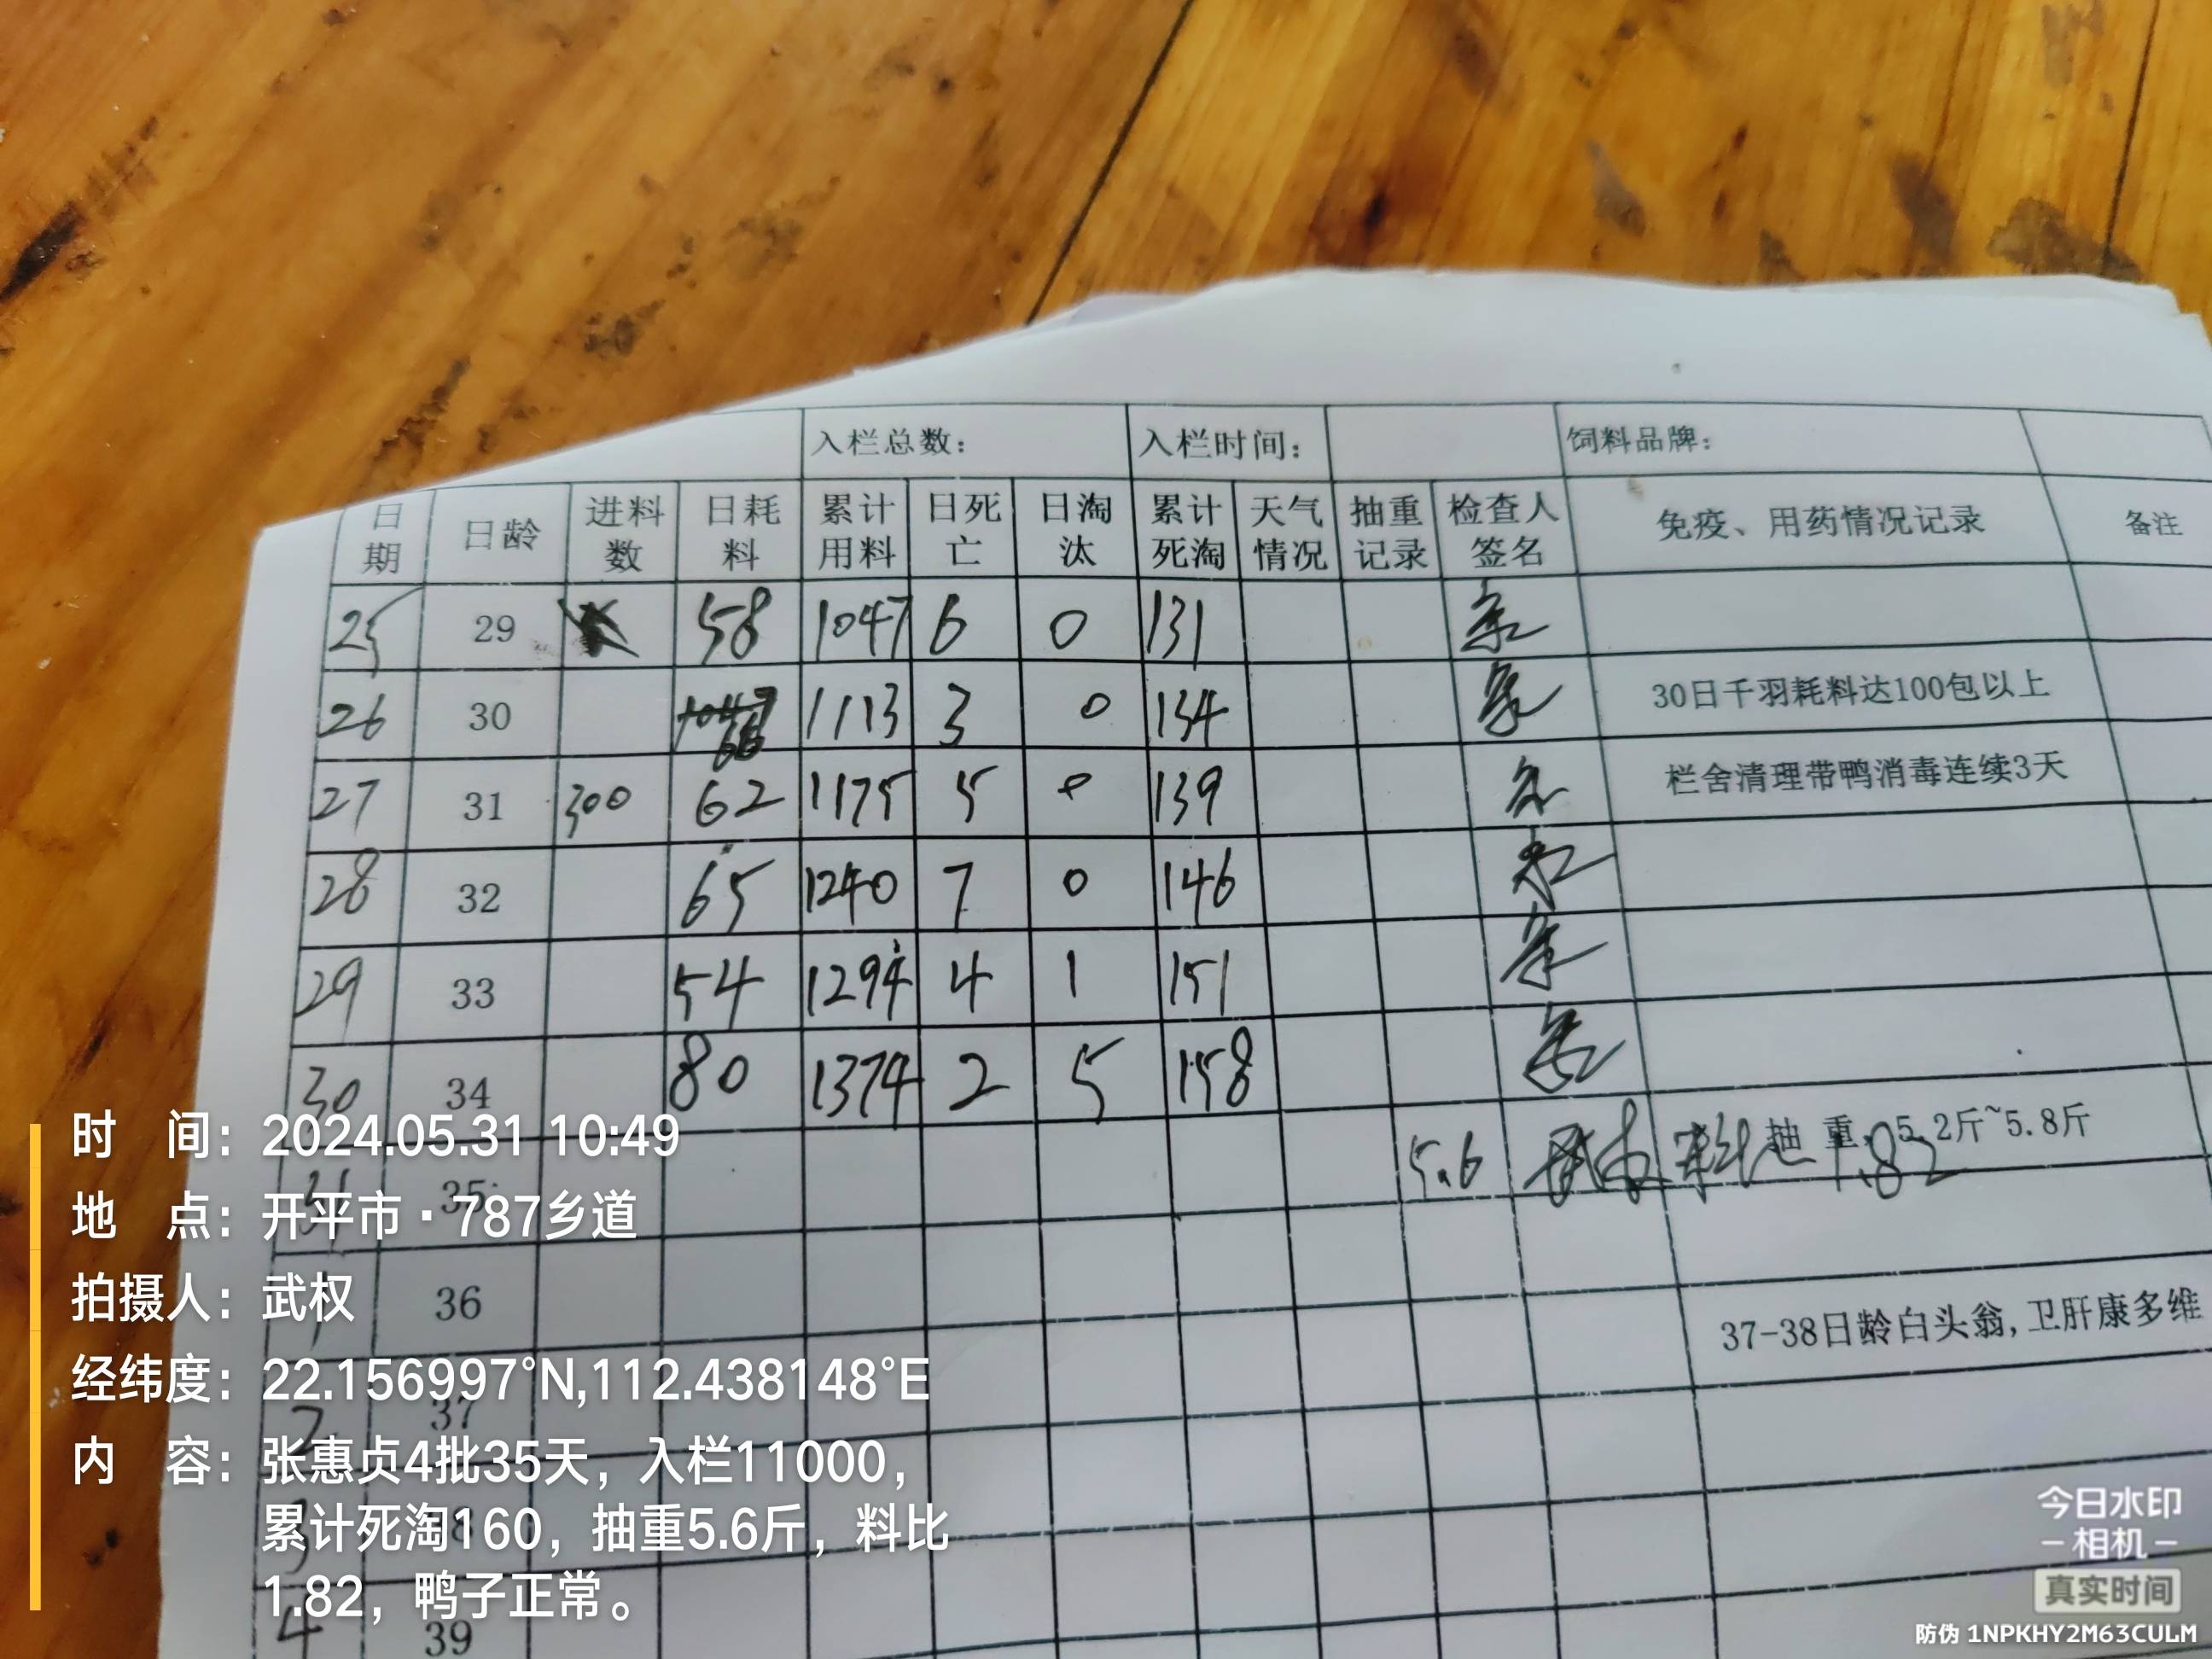 入栏总数： 入栏时间： 饲料品牌：
日期 日龄 进料数 日耗料 累计用料 日死亡 日淘汰 累计死淘 天气情况 抽重记录 检查人签名 免疫、用药情况记录 备注
25 29 58 1047 6 0 131
26 30 66 1113 3 0 134 30日千羽耗料达100包以上
27 31 300 62 1175 5 0 139 栏舍清理带鸭消毒连续3天
28 32 65 1240 7 0 146
29 33 54 1294 4 1 151
30 34 80 1374 2 5 158
31 35 5.6 武权 料比 1.82 抽重：5.2斤~5.8斤
1 36
37-38日龄白头翁,卫肝康多维
2 37
3 38
4 39
时 间：2024.05.31 10:49
地 点：开平市·787乡道
拍摄人：武权
经纬度：22.156997°N,112.438148°E
内 容：张惠贞4批35天，入栏11000，
累计死淘160，抽重5.6斤，料比
1.82，鸭子正常。
今日水印
相机
真实时间
防伪 1NPKHY2M63CULM